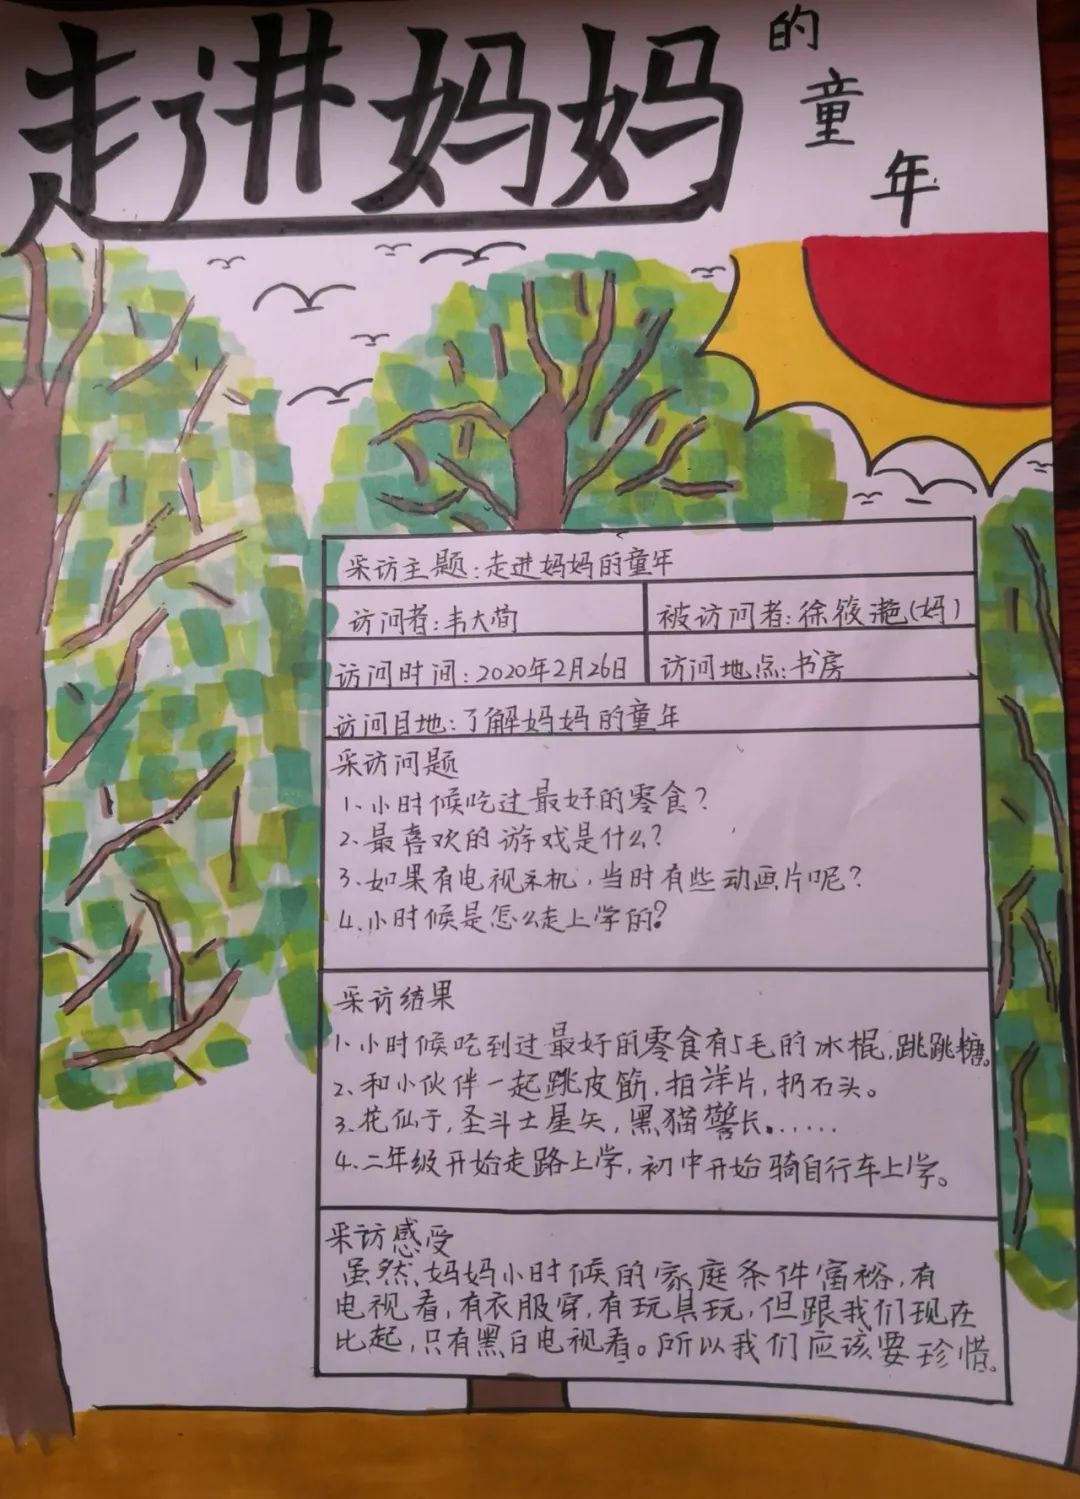 走进妈妈的童年
采访主题:走进妈妈的童年
访问者:韦大简
被访问者:徐筱滟(妈)
访问时间:2020年2月26日
访问地点:书房
访问目地:了解妈妈的童年
采访问题
1、小时候吃过最好的零食?
2、最喜欢的游戏是什么?
3、如果有电视采机,当时有些动画片呢?
4、小时候是怎么走上学的?
采访结果
1、小时候吃到过最好的零食有5毛的冰棍,跳跳糖。
2、和小伙伴一起跳皮筋,拍洋片,扔石头。
3、花仙于,圣斗士星矢,黑猫警长。......
4、二年级开始走路上学,初中开始骑自行车上学。
采访感受
虽然,妈妈小时候的家庭条件富裕,有
电视看,有衣服穿,有玩具玩,但跟我们现在
比起,只有黑白电视看。所以我们应该要珍惜。